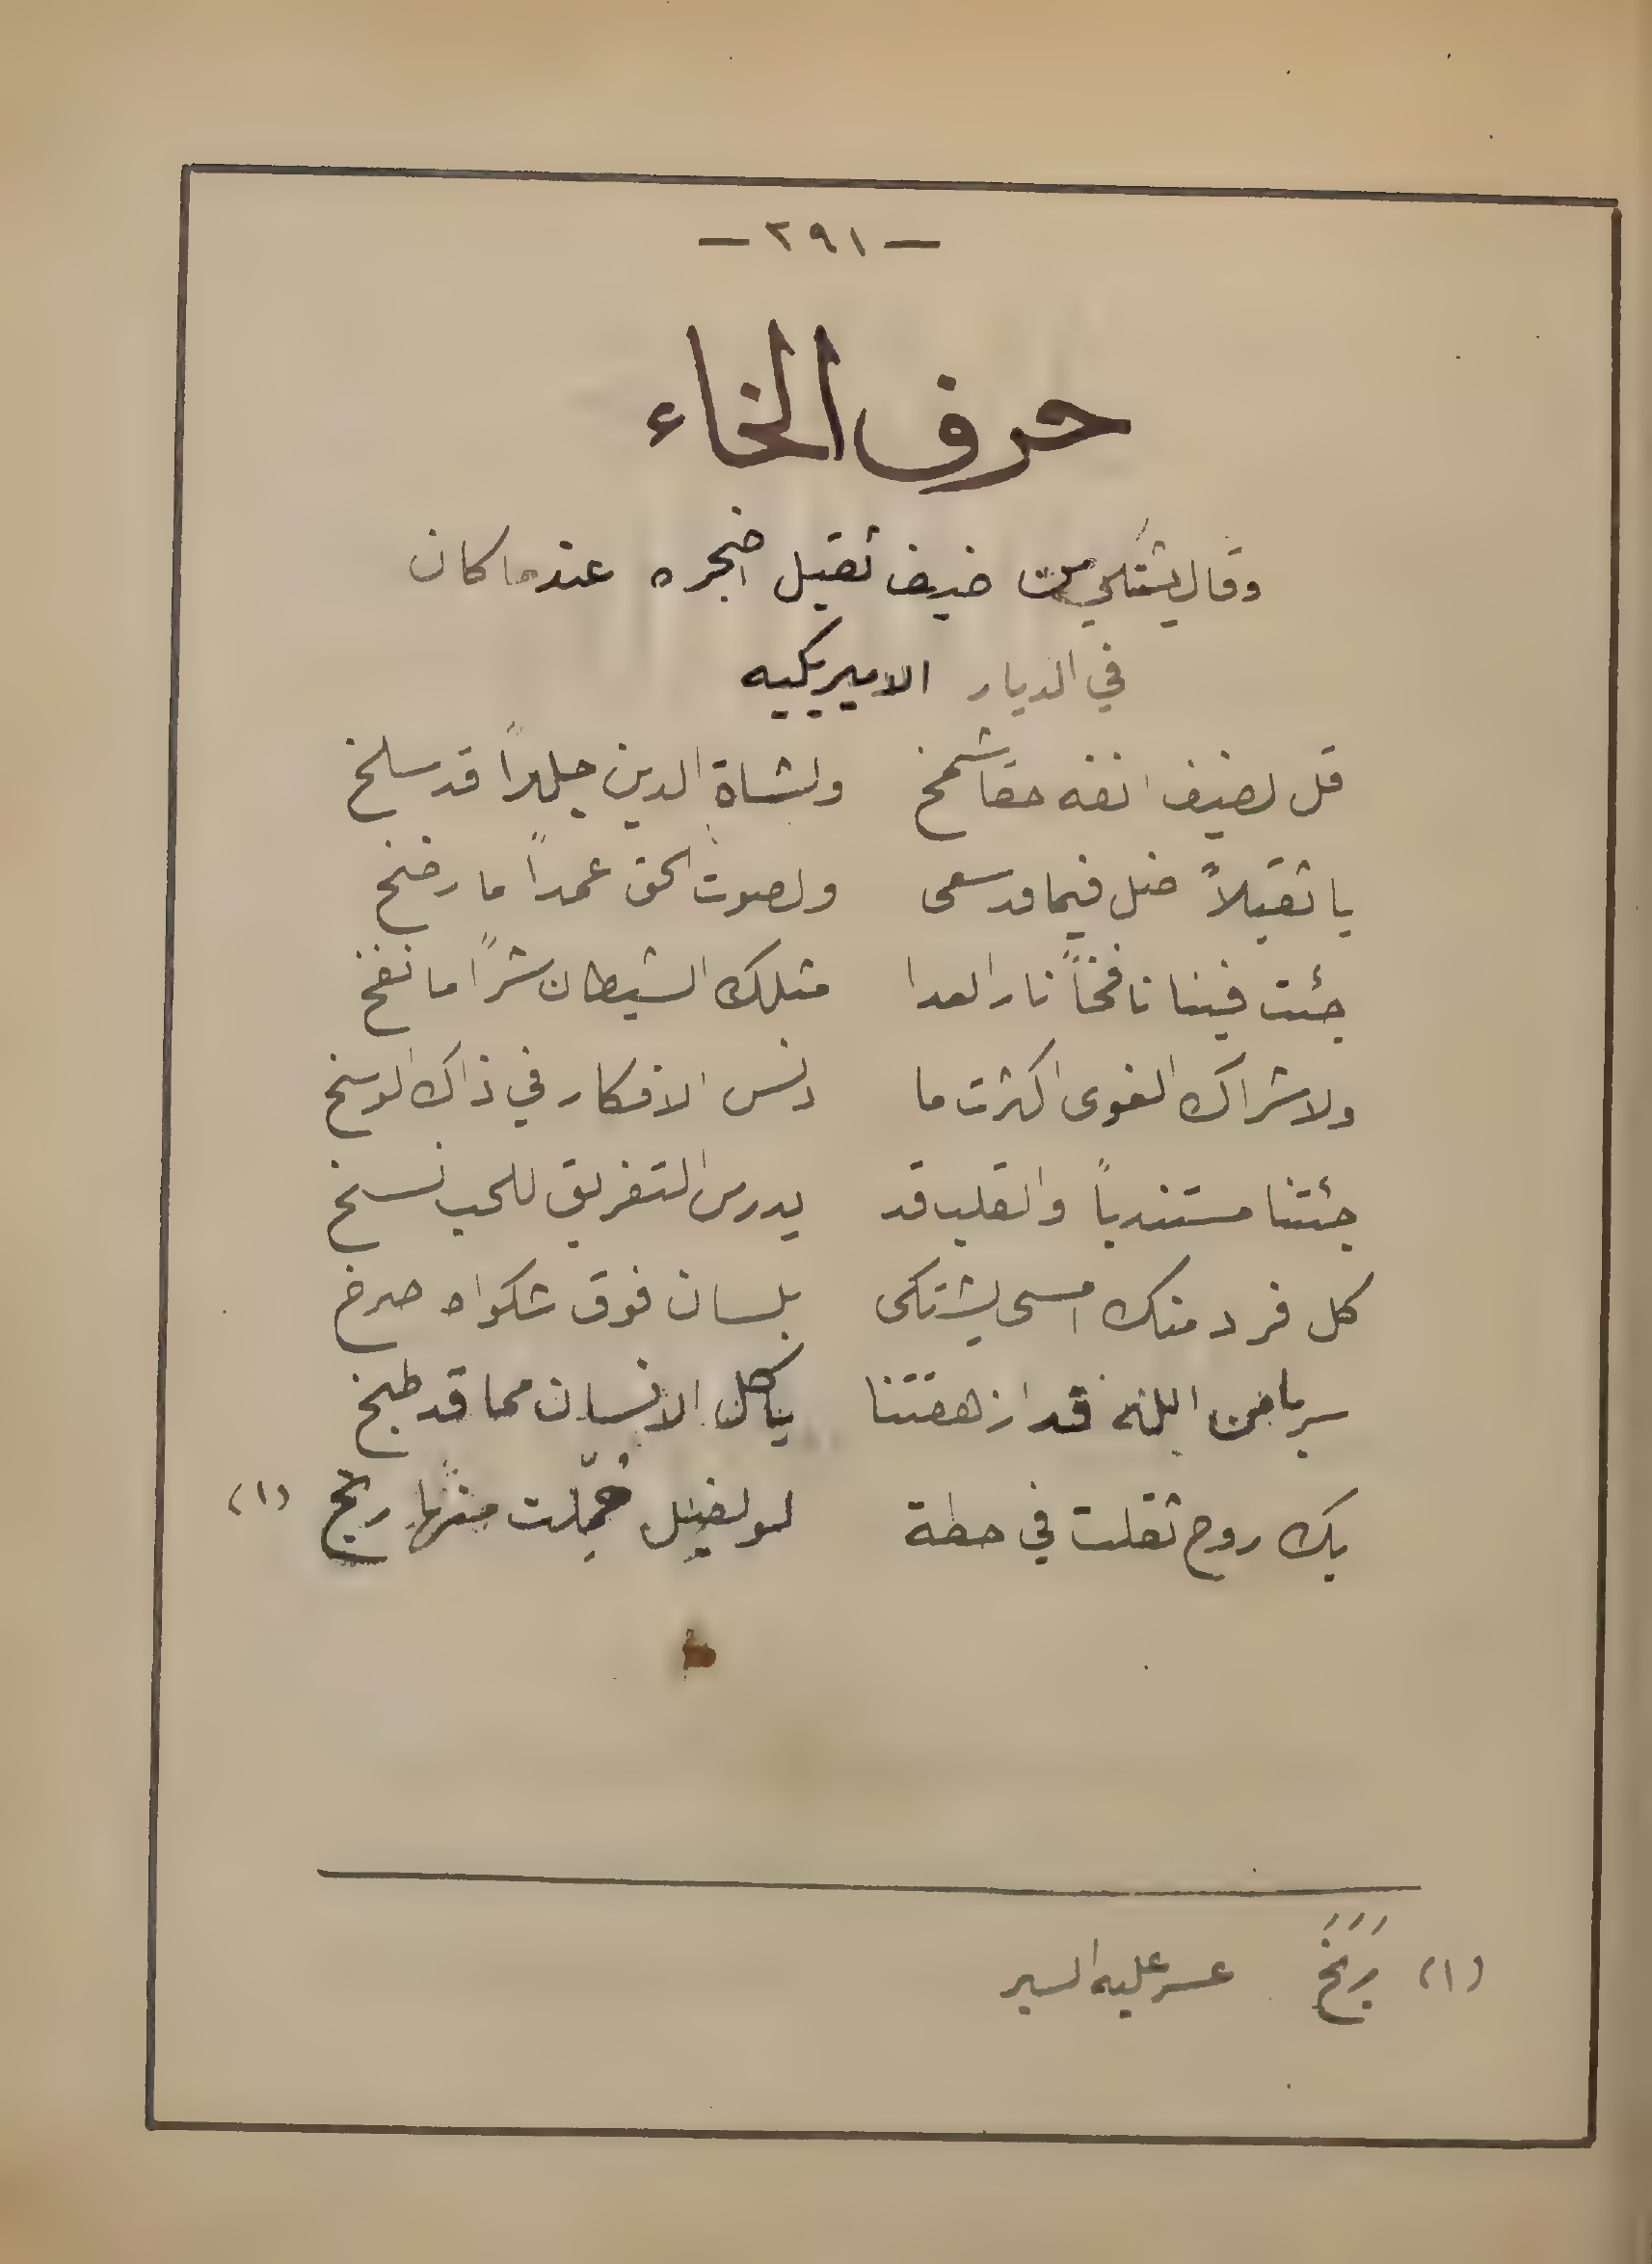 — ٢٩١ —
حرف الخاء
وقال يشتكي من ضيف ثقيل اضجره عندما كان
في الديار الاميريكيه
قل لضيف انفه حقا شمخ ولشاة الدين جلداً قد سلخ
يا ثقيلاً ضل فيما قد سعى ولصوت الحق عمداً ما رضخ
جئت فينا نافخاً نار العدا مثلك الشيطان شراً ما نفخ
ولاشراك الغوى اكثرت ما دنس الافكار في ذاك الوسخ
جئتنا مستندباً والقلب قد يدرس التفريق للحب نسخ
كل فرد منك امسى يشتكى بلسان فوق شكواه صرخ
سر بامن الله قد ازهقتنا يأكل الانسان مما قد طبخ
بك روح ثقلت في حطة لو لفيل حُمِّلت منها رنخ (١)
(١) رَنَخَ عسر عليه السير